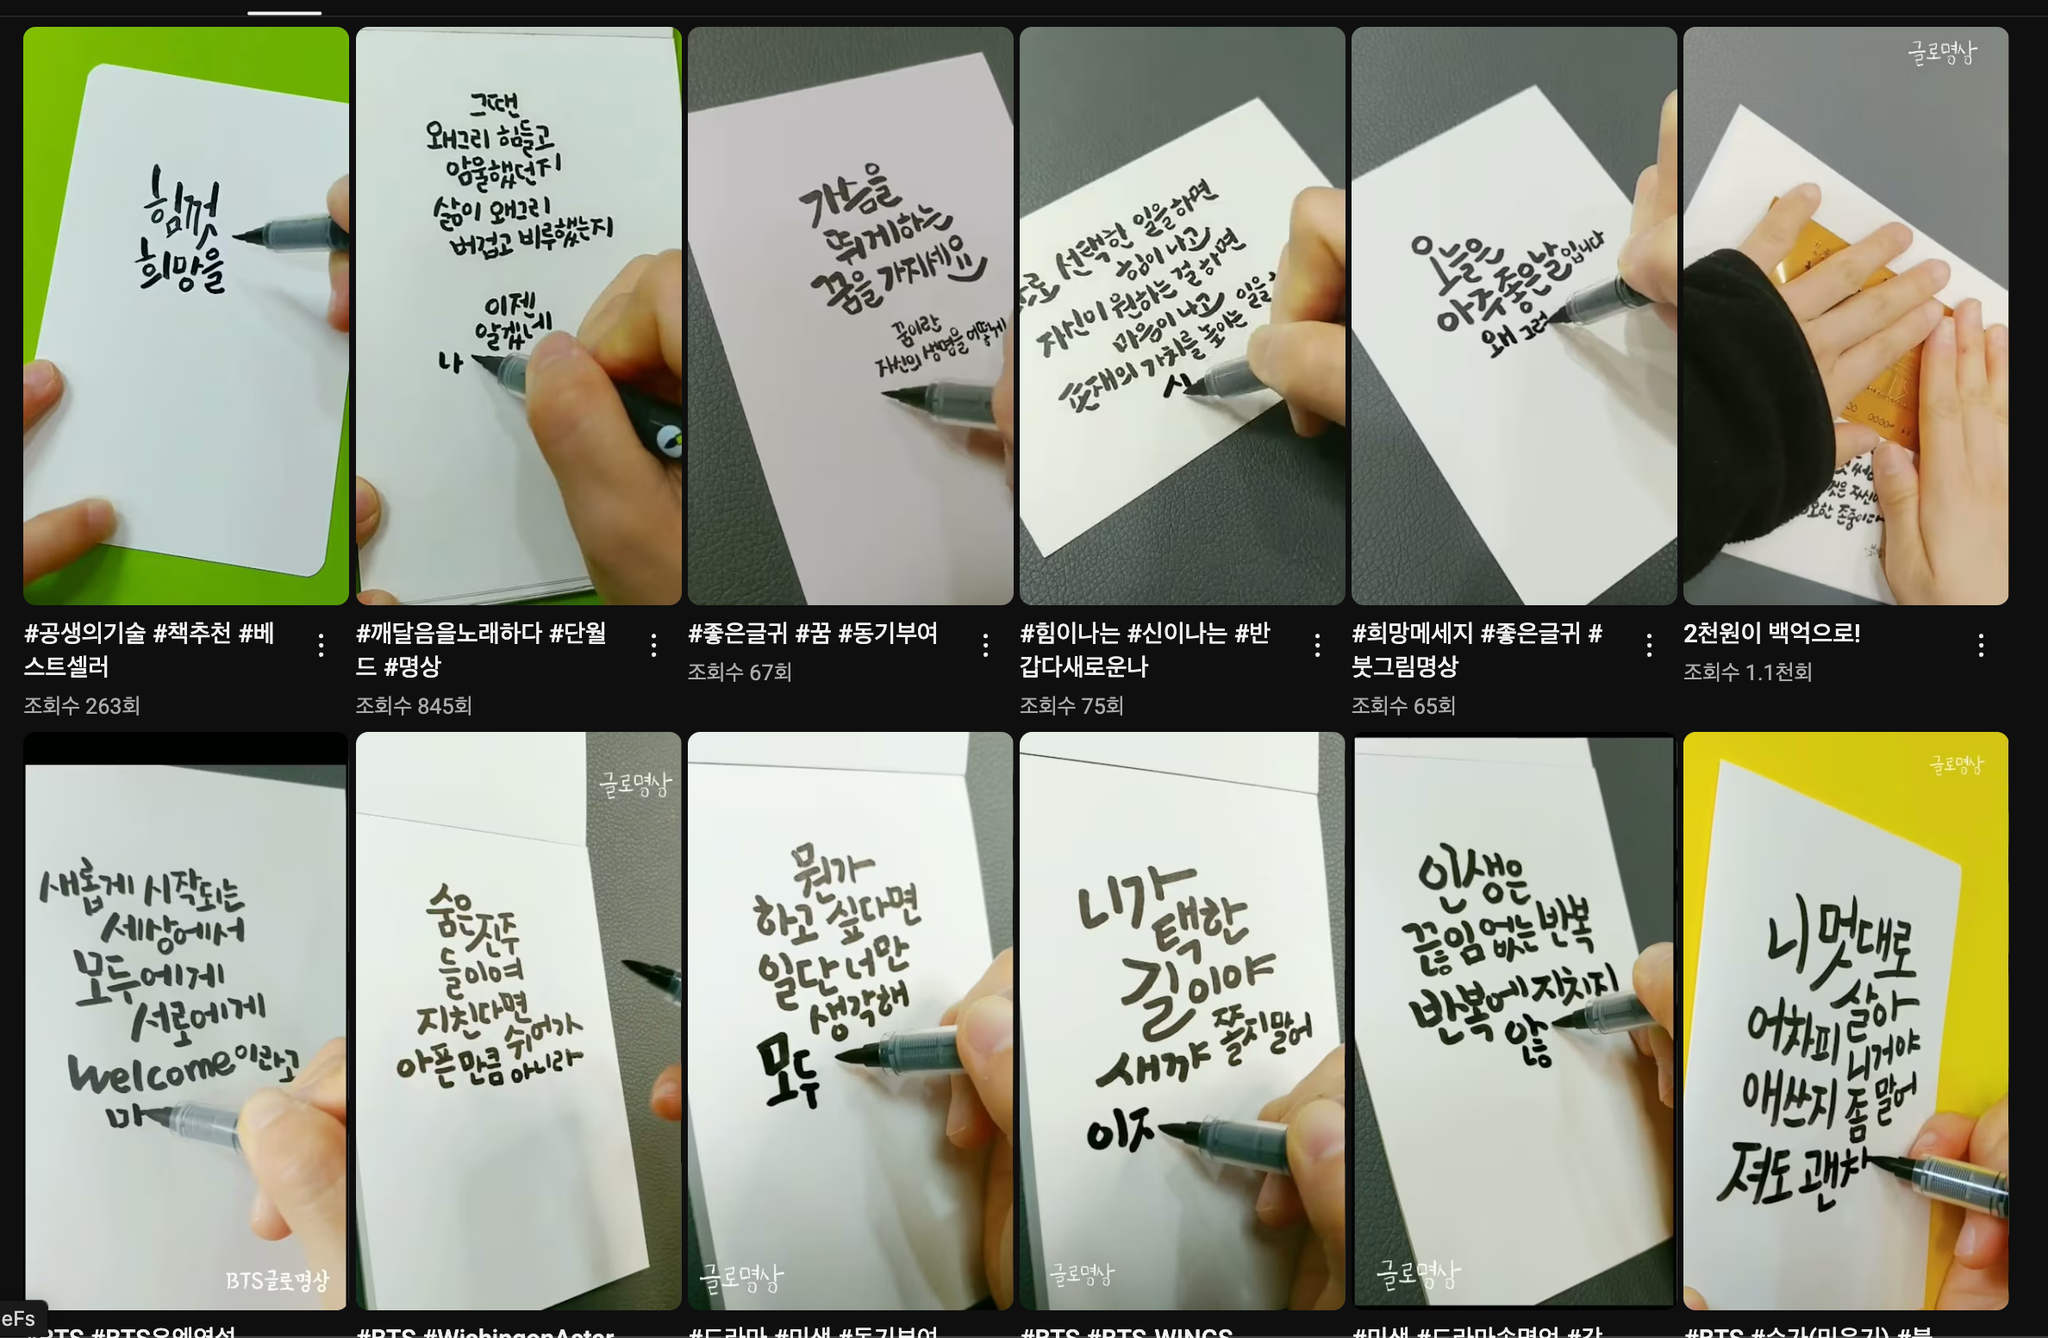 힘껏
희망을
그땐
왜그리 힘들고
암울했던지
삶이 왜그리
버겁고 비루했는지
이젠
알겠네
나
가슴을
뛰게하는
꿈을 가지세요
꿈이란
자신의 생명을 어떻게
으로 선택한 일을하면
힘이 나고
자신이 원하는 걸 하면
마음이 나고
존재의 가치를 높이는 일을
신
오늘은
아주좋은날입니다
왜 그러
글로명상
것은 자신
한 존중이다
#공생의기술 #책추천 #베
스트셀러
조회수 263회
#깨달음을노래하다 #단월
드 #명상
조회수 845회
#좋은글귀 #꿈 #동기부여
조회수 67회
#힘이나는 #신이나는 #반
갑다새로운나
조회수 75회
#희망메세지 #좋은글귀 #
붓그림명상
조회수 65회
2천원이 백억으로!
조회수 1.1천회
새롭게 시작되는
세상에서
모두에게
서로에게
welcome이라고
마
BTS글로명상
글로명상
숨은
진주
들이여
지친다면
쉬어가
아픈만큼 아니라
뭔가
하고 싶다면
일단 너만
생각해
모두
글로명상
니가
택한
길이야
새꺄 쫄지말어
이지
글로명상
인생은
끊임 없는 반복
반복에 지치지
않
글로명상
글로명상
니 멋대로
살아
어차피 니거야
애쓰지 좀 말어
져도 괜차
eFs
#BTS #BTS유엔연설
#BTS #WishingonAstar
#드라마 #미생 #동기부여
#BTS #BTS WINGS
#미생 #드라마속명언 #갓
#BTS #슈가(민윤기) #붓